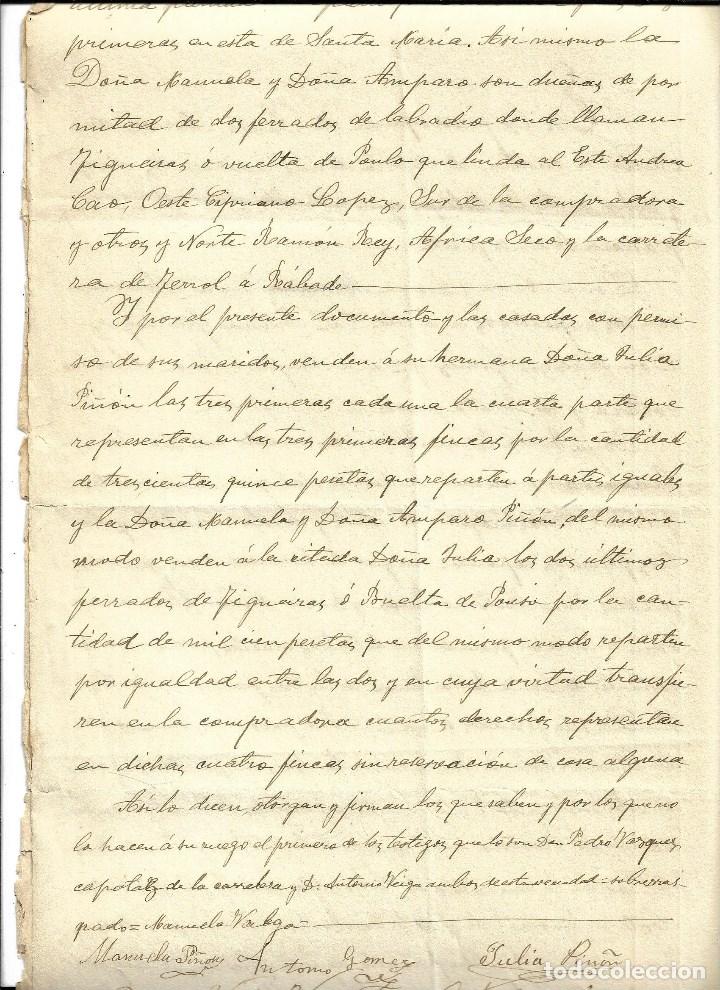 primeras en esta de Santa María. Asi mismo la
Doña Manuela y Doña Amparo son dueñas de por
mitad de dos ferrados de labradío donde llaman
Figueiras ó vuelta de Poulo que linda al Este Andrea
Cao, Oeste Cipriano Lopez, Sur de la compradora
y otros y Norte Ramón Rey, Africa Seco y la carrete
ra de Ferrol á Rábade
Y por el presente documento y las casadas con permi-
so de sus maridos, venden á su hermana Doña Julia
Piñón las tres primeras cada una la cuarta parte que
representan en las tres primeras fincas por la cantidad
de trescientas quince pesetas que reparten á partes iguales
y la Doña Manuela y Doña Amparo Piñón, del mismo
modo venden á la citada Doña Julia los dos últimos
ferrados de Figueiras ó Vuelta de por la can-
tidad de mil cien pesetas que del mismo modo reparten
por igualdad entre las dos y en cuya virtud transfie-
ren en la compradora cuantos derechos representan
en dichas cuatro fincas sin reservación de cosa alguna
Así lo dicen, otorgan y firman los que saben y por los que no
lo hacen á su ruego el primero de los testigos que lo son Don Pedro Vazquez
capataz de la carretera y D. Antonio Veiga ambos de esta vecindad = sobrerras-
pado = Manuela
Manuela Piñon Antonio Gomez Julia Piñón
todocoleccion